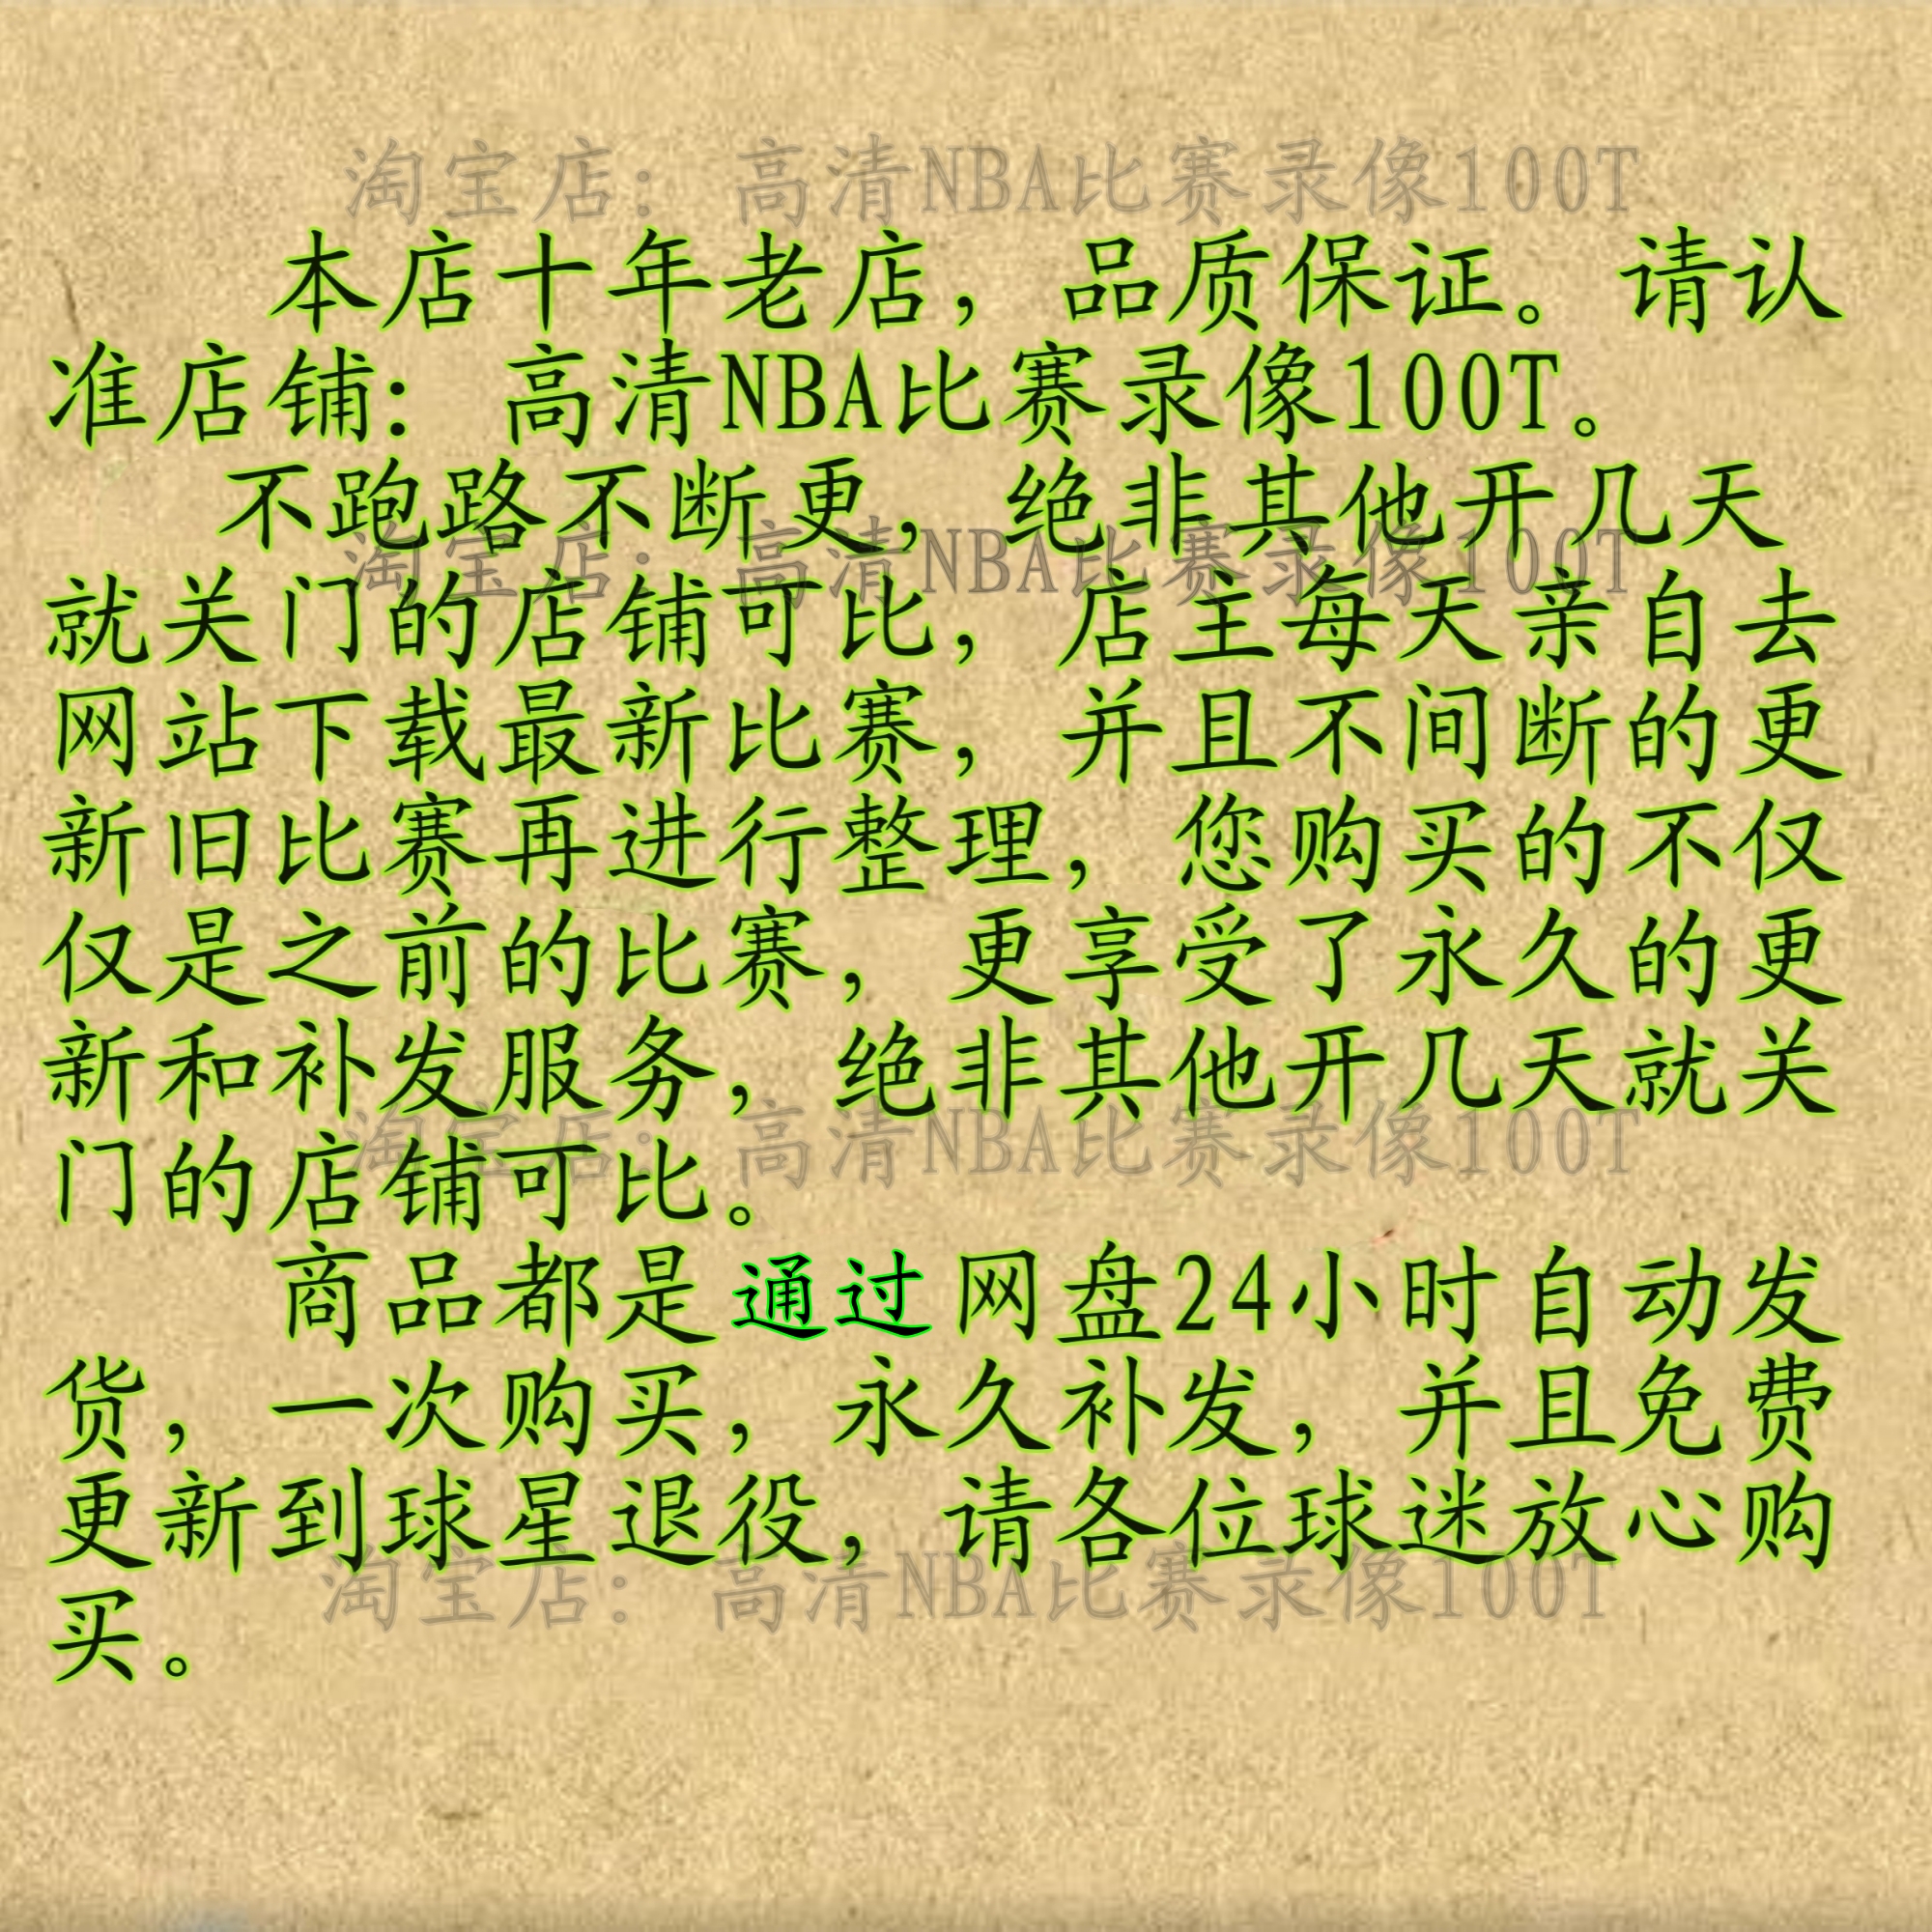 淘宝店：高清NBA比赛录像100T
本店十年老店，品质保证。请认
准店铺：高清NBA比赛录像100T。
不跑路不断更，绝非其他开几天
淘宝店：高清NBA比赛录像100T
就关门的店铺可比，店主每天亲自去
网站下载最新比赛，并且不间断的更
新旧比赛再进行整理，您购买的不仅
仅是之前的比赛，更享受了永久的更
新和补发服务，绝非其他开几天就关
淘宝店：高清NBA比赛录像100T
门的店铺可比。
商品都是通过网盘24小时自动发
货，一次购买，永久补发，并且免费
更新到球星退役，请各位球迷放心购
淘宝店：高清NBA比赛录像100T
买。